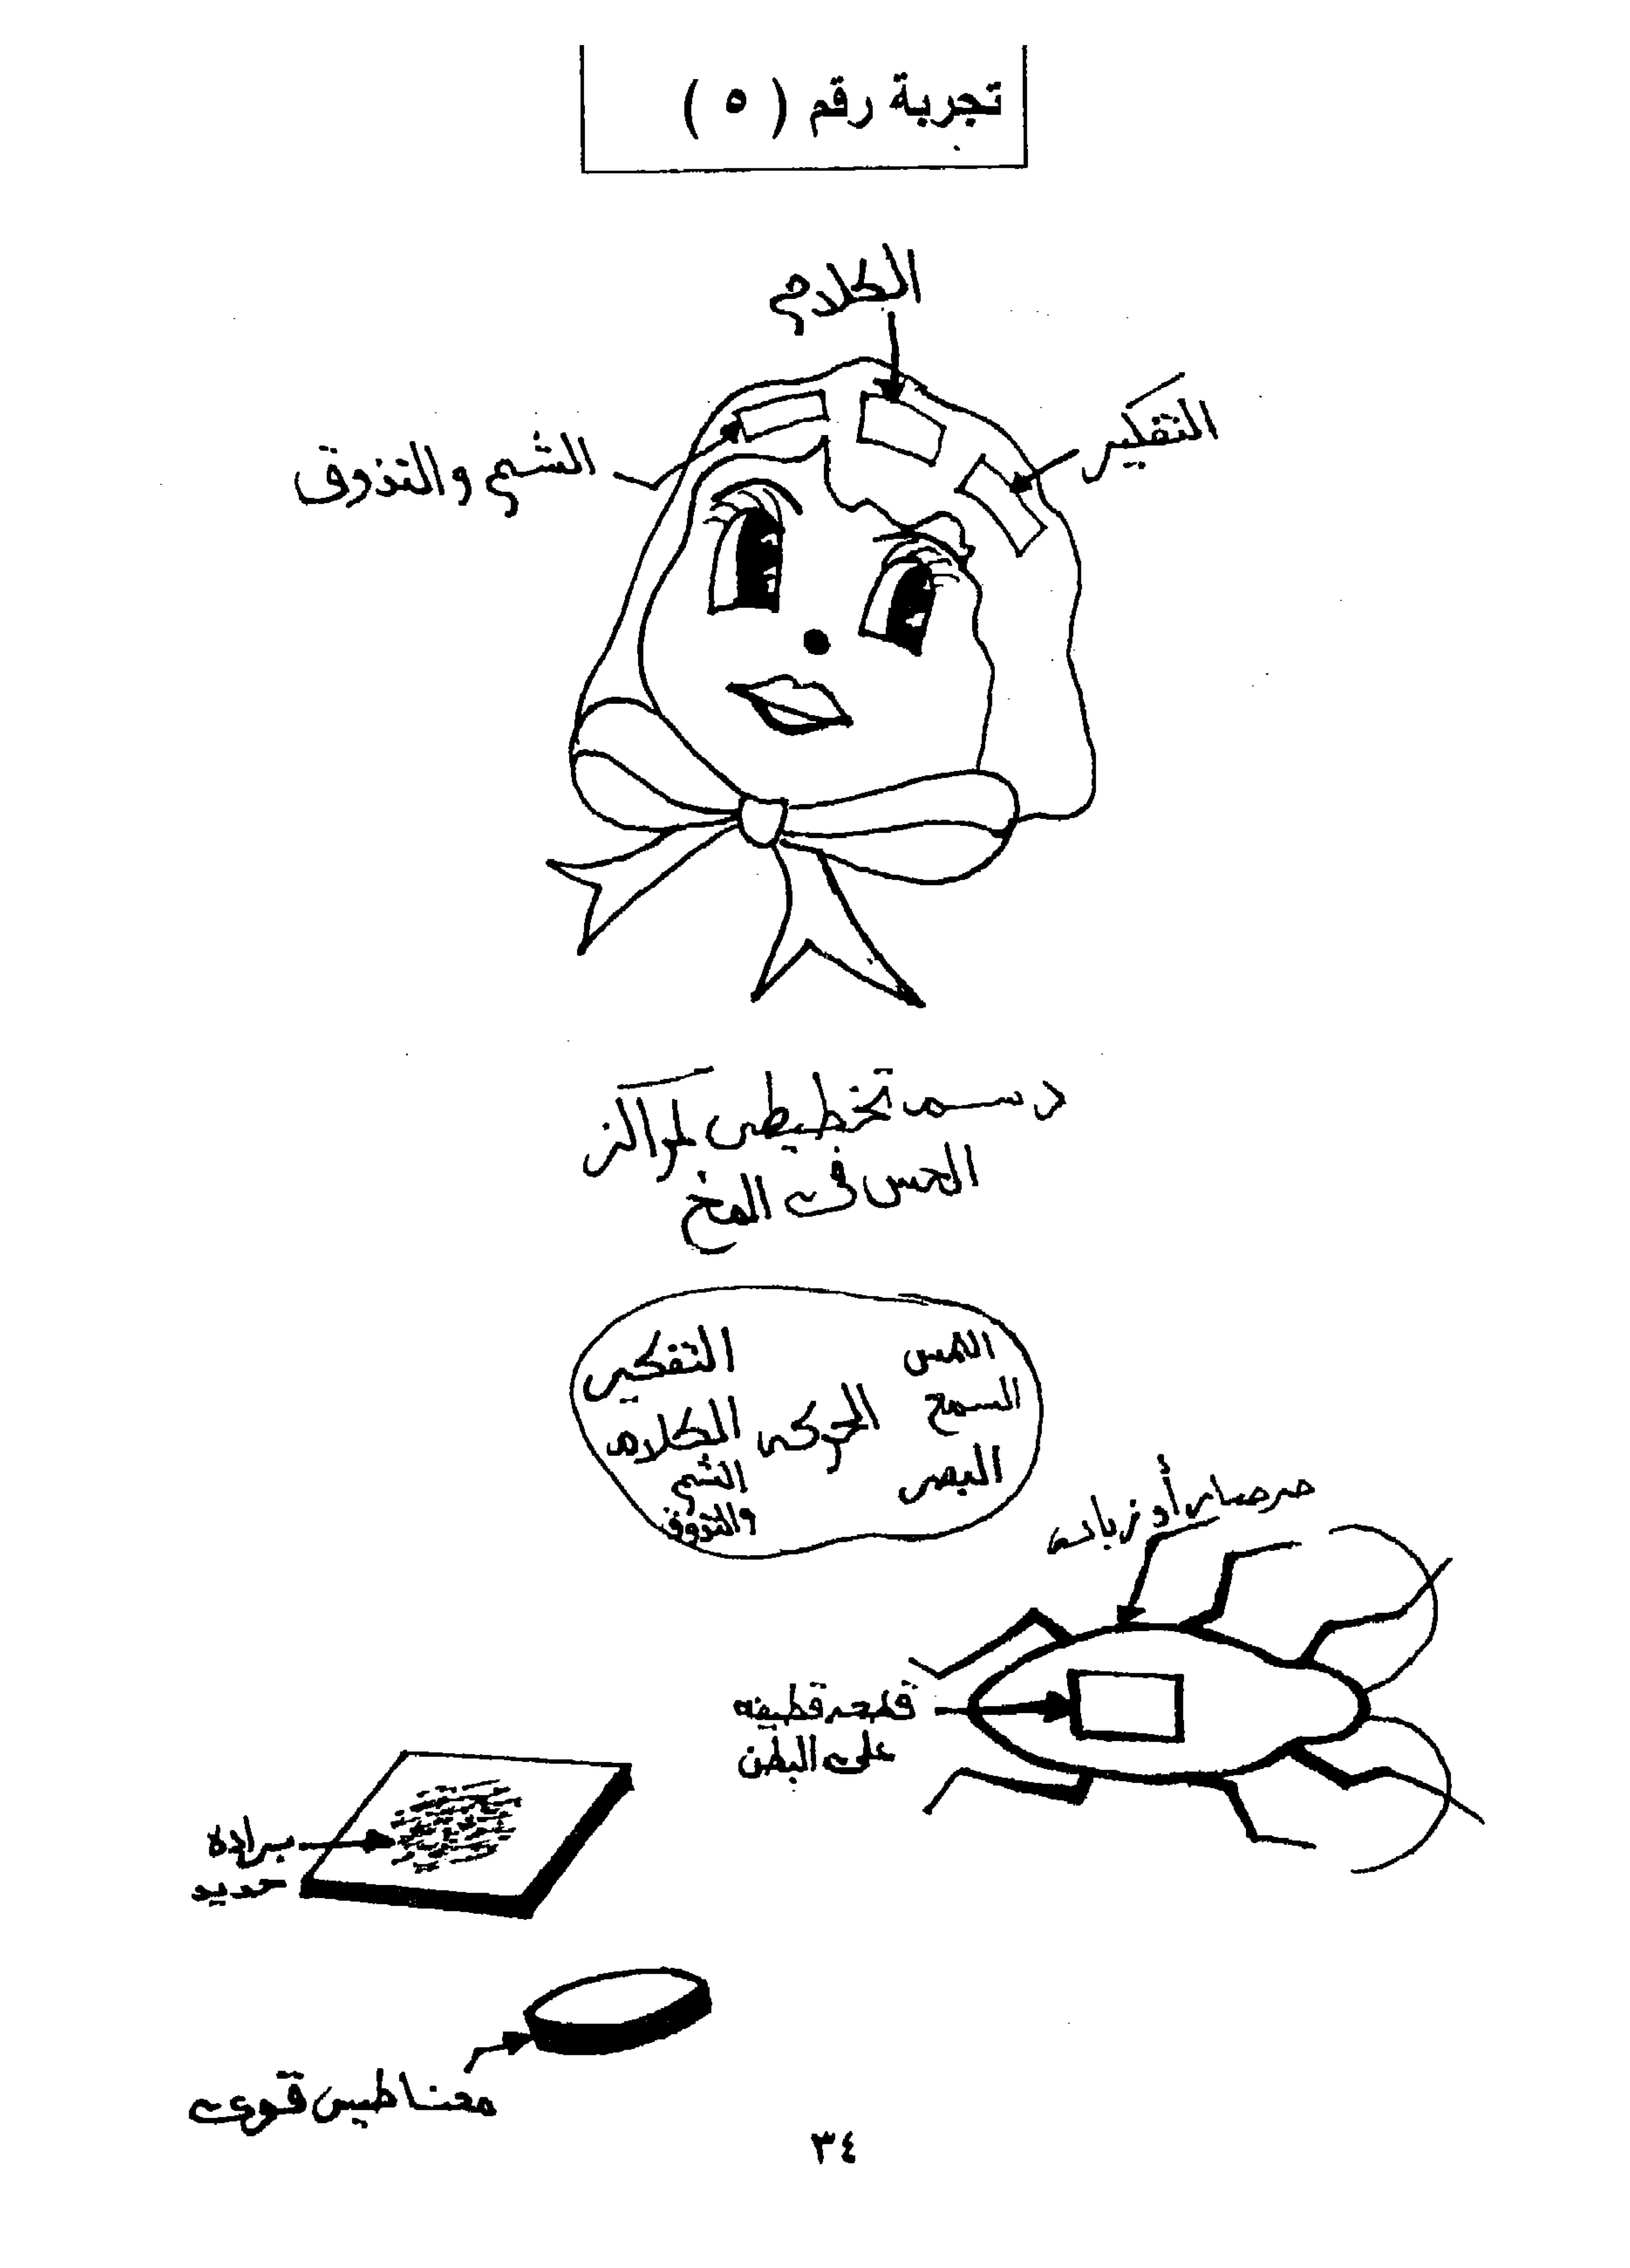 تجربة رقم ( ٥ )
الكلام
التفكير
الشم والتذوق
رسم تخطيطى لمراكز
الحس فى المخ
التفكير
الكلام
الشم
والتذوق
الحركه
اللمس
السمع
البصر
صرصار أو ذبابه
قطعه قطيفه
على البطن
برادة
حديد
مغناطيس قوى
٣٤